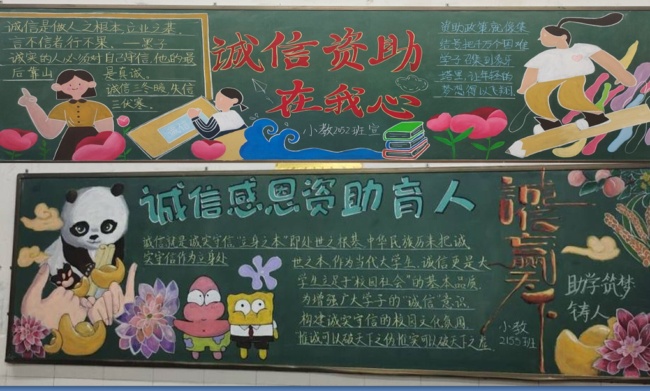 诚信是做人之根本,立业之基。
言不信者,行不果。——墨子
诚实的人必须对自己守信,他的最
后靠山是真诚。
诚信三冬暖,失信
三伏寒。
诚信资助
在我心
小教2152班宣
资助政策就像集
结号把千万个困难
学子召集到象牙
塔里,让年轻的
梦想得以飞翔。
诚信感恩资助育人
诚信就是诚实守信“立身之本”即处世之根基,中华民族历来把诚
实守信作为立身处
世之本,作为当代大学生,诚信更是大
学生立足于“校园社会”的基本品质
为增强广大学子的“诚信”意识
构建诚实守信的校园文化氛围
惟诚可以破天下之伪惟实可以破天下之虚
诚赢天下
小教
2155班
助学筑梦
铸人